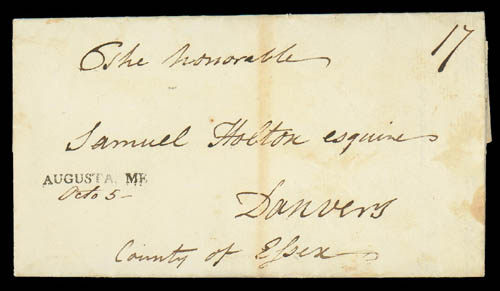 17
The honorable
Samuel Holton esquire
AUGUSTA, ME
Octo 5
Danvers
County of Essex